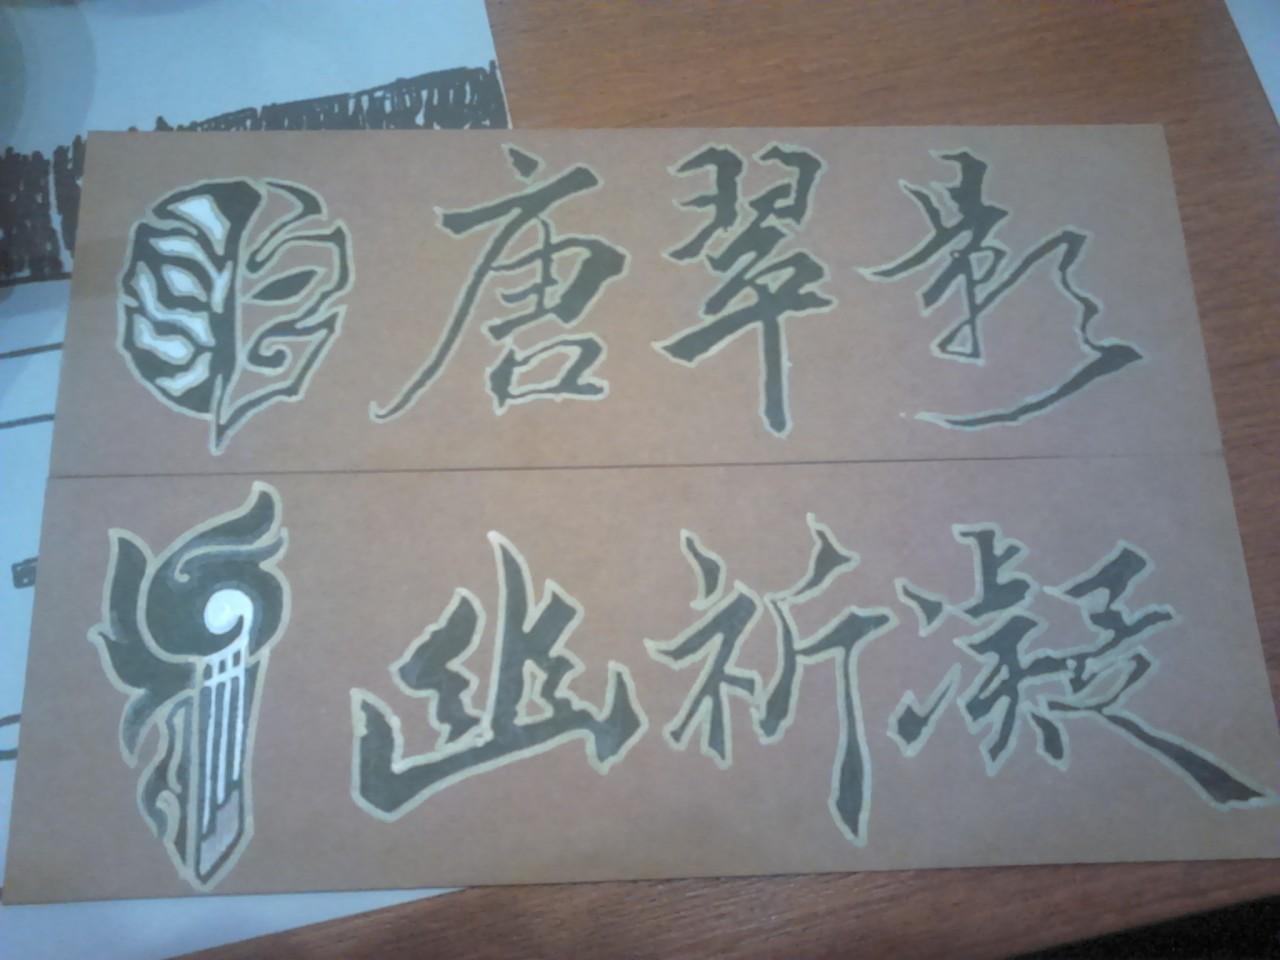 唐翠影
幽祈凝